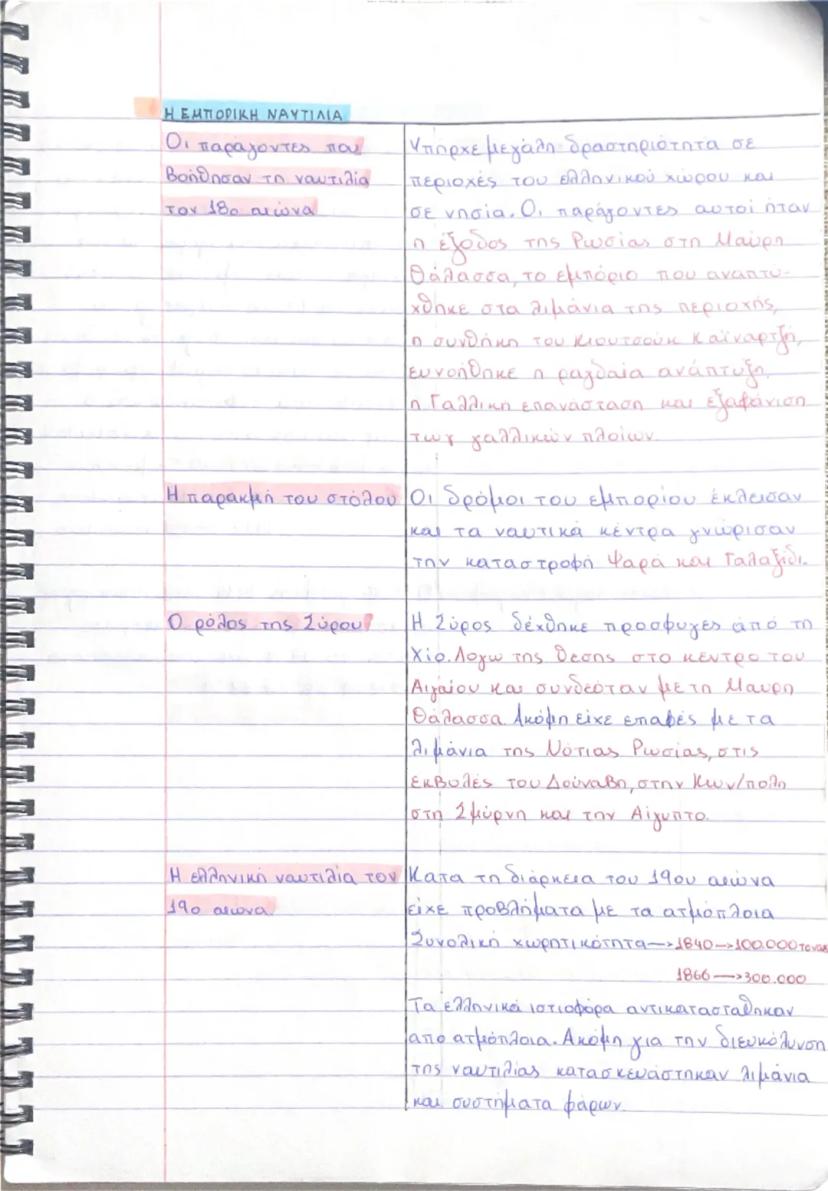 Η ΕΜΠΟΡΙΚΗ ΝΑΥΤΙΛΙΑ
Οι παράγοντες που
βοήθησαν τη ναυτιλία
τον 18ο αιώνα
Υπήρχε μεγάλη δραστηριότητα σε
περιοχές του ελληνικού χώρου και
σε νησία. Οι παράγοντες αυτοί ήταν
η έξοδος της Ρωσίας στη Μαύρη
Θάλασσα, το εμπόριο που αναπτύ-
χθηκε στα λιμάνια της περιοχής,
η συνθήκη του Κιουτσούκ Καϊναρτζή,
ευνοήθηκε η ραγδαία ανάπτυξη,
η Γαλλική επανάσταση και εξαφάνιση
των γαλλικών πλοίων.
Η παρακμή του στόλου
Οι δρόμοι του εμπορίου έκλεισαν
και τα ναυτικά κέντρα γνώρισαν
την καταστροφή Ψαρά και Γαλαξίδι.
Ο ρόλος της Σύρου
Η Σύρος δέχθηκε προσφυγες από τη
Χίο. Λογω της θεσης στο κέντρο του
Αιγαίου και συνδεόταν με τη Μαυρη
Θάλασσα. Ακόμη είχε επαφές με τα
λιμάνια της Νότιας Ρωσίας, στις
εκβολές του Δούναβη, στην Κων/πολη
στη Σμύρνη και την Αίγυπτο.
Η ελληνική ναυτιλία τον
19ο αιώνα
Κατα τη διάρκεια του 19ου αιώνα
είχε προβλήματα με τα ατμόπλοια
Συνολική χωρητικότητα → 1840 → 100.000 τόνους
1866 → 300.000
Τα ελληνικά ιστιοφόρα αντικαταστάθηκαν
απο ατμόπλοια. Ακόμη για την διευκόλυνση
της ναυτιλίας κατασκευάστηκαν λιμάνια
και συστήματα φάρων.